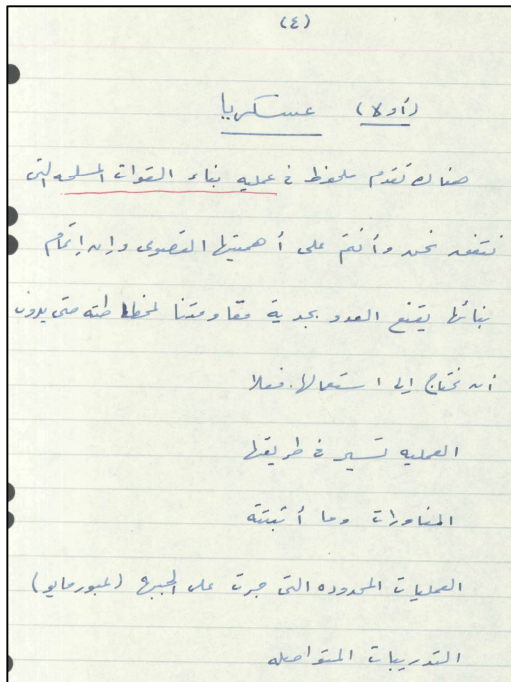 (٤)
(أولا) عسكريا
هناك تقدم ملحوظ فى عمليه بناء القوات المسلحه التى
نتفق نحن وأنتم على أهميتها القصوى وإن إتمام
بنائها يقنع العدو بجدية مقاومتنا لمخططاته حتى بدون
أن نحتاج إلى استعمالها. فعلا
العمليه تسير فى طريقها
المناورات وما أثبتته
العمليات المحدوده التى جرت على الجبهه (عبور مايو)
التدريبات المتواصله